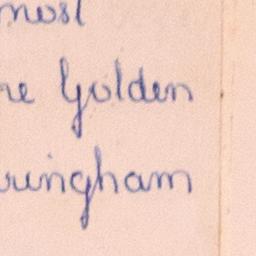 most
re Golden
ringham